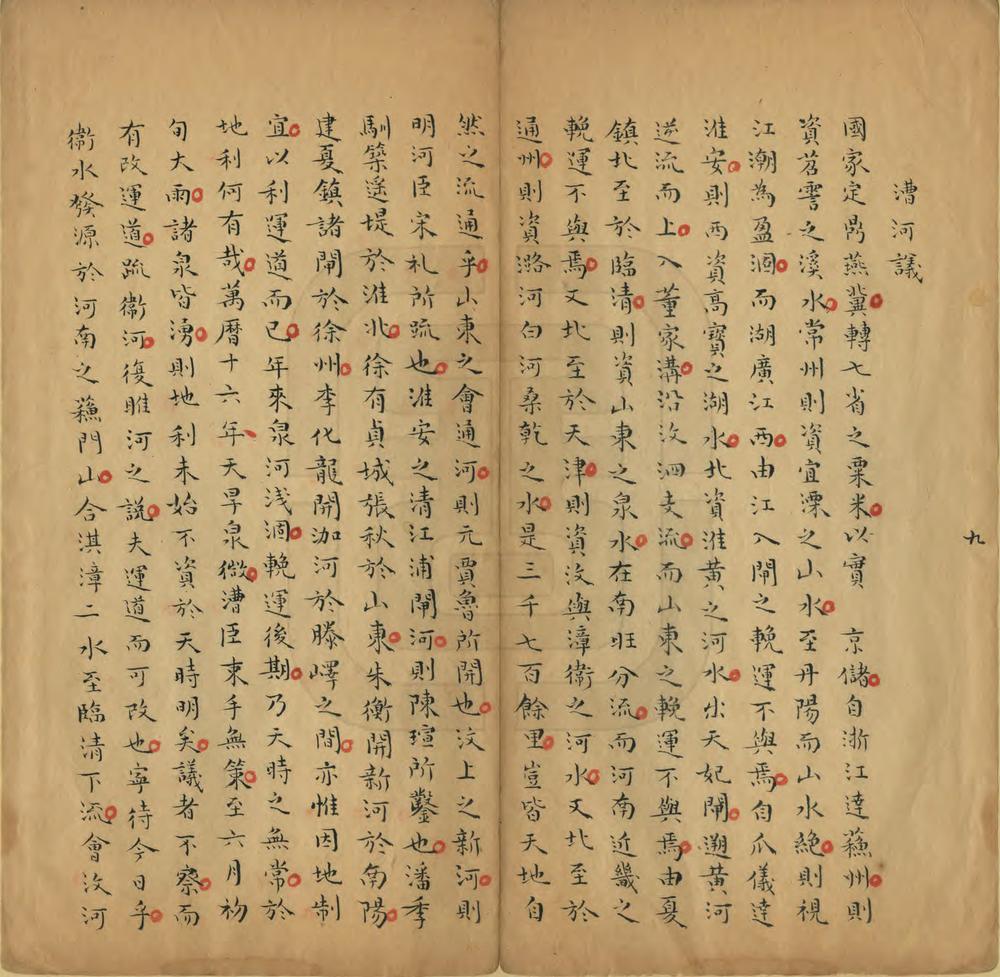 九
漕河議
國家定鼎燕冀轉七省之粟米以實　京儲自浙江達蘓州則
資苕霅之溪水常州則資宜溧之山水至丹陽而山水絶則視
江潮為盈涸而湖廣江西由江入閘之輓運不與焉自瓜儀達
淮安則西資高寶之湖水北資淮黄之河水出天妃閘遡黄河
逆流而上入董家溝沿汶泗支流而山東之輓運不與焉由夏
鎮北至於臨清則資山東之泉水在南旺分流而河南近畿之
輓運不與焉又北至於天津則資汶與漳衛之河水又北至於
通州則資潞河白河桑乾之水是三千七百餘里豈皆天地自
然之流通乎山東之會通河則元賈魯所開也汶上之新河則
明河臣宋礼所疏也淮安之清江浦閘河則陳瑄所鑿也潘季
馴築遥堤於淮北徐有貞城張秋於山東朱衡開新河於南陽
建夏鎮諸閘於徐州李化龍開泇河於滕嶧之間亦惟因地制
宜以利運道而已年來泉河浅涸輓運後期乃天時之無常於
地利何有哉萬曆十六年天旱泉微漕臣束手無策至六月初
旬大雨諸泉皆湧則地利未始不資於天時明矣議者不察而
有改運道疏衛河復睢河之説夫運道而可改也寧待今日乎
衛水發源於河南之蘓門山合淇漳二水至臨清下流會汶河